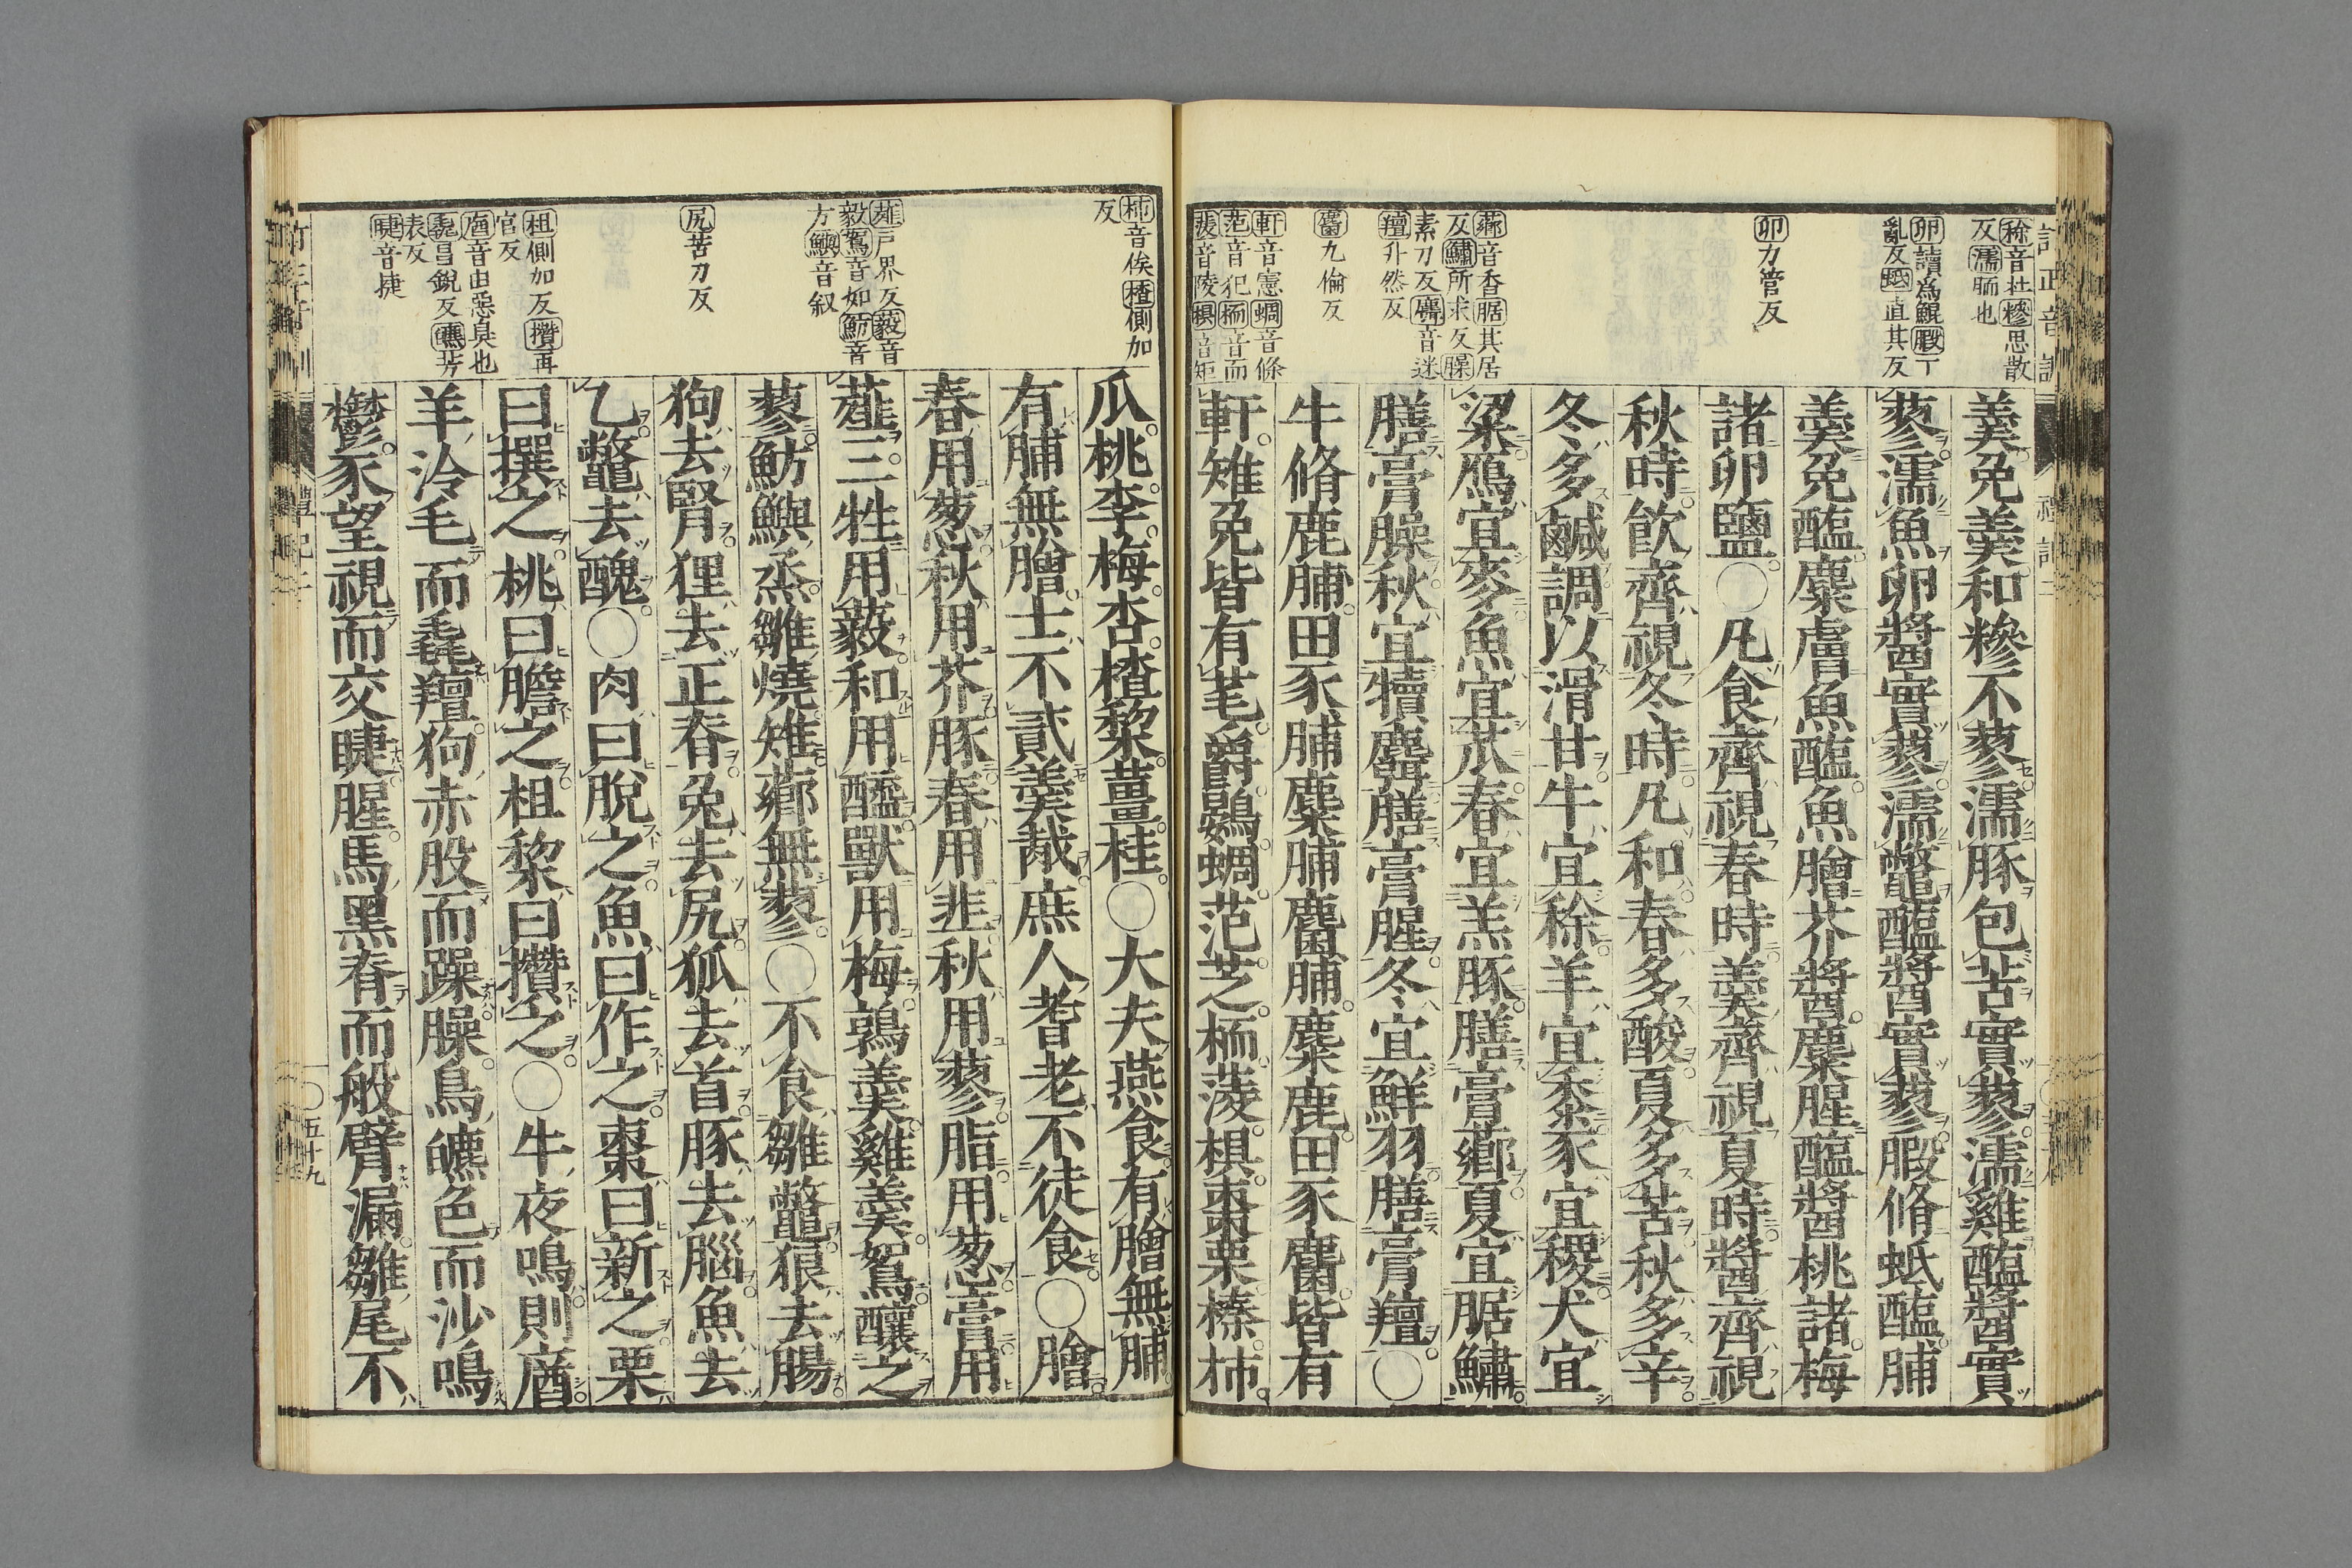 稌音杜糝思散
反濡胹也
卵讀爲鯤腶丁
亂反蚳直其反
卵力管反
薌音香腒其居
反鱐所求反臊
素刀反麛音迷
羶升然反
麕九倫反
軒音憲蜩音條
范音犯栭音而
蔆音陵椇音矩
羹兔羹和糝不蓼濡豚包苦實蓼濡雞醢醬實
蓼濡魚卵醬實蓼濡鼈醢醬實蓼腶脩蚳醢脯
羹兔醢麋膚魚醢魚膾芥醬麋腥醢醬桃諸梅
諸卵鹽○凡食齊視春時羹齊視夏時醬齊視
秋時飲齊視冬時凡和春多酸夏多苦秋多辛
冬多鹹調以滑甘牛宜稌羊宜黍豕宜稷犬宜
粱鴈宜麥魚宜苽春宜羔豚膳膏薌夏宜腒鱐
膳膏臊秋宜犢麛膳膏腥冬宜鮮羽膳膏羶○
牛脩鹿脯田豕脯麋脯麕脯麋鹿田豕麕皆有
軒雉兔皆有芼爵鷃蜩范芝栭蔆椇棗栗榛柿
柿音俟楂側加
反
薤戶界反藙音
毅鴽音如魴音
方鱮音叙
尻苦刀反
柤側加反攢再
官反
庮音由惡臭也
毳昌銳反皫芳
表反
睫音捷
瓜桃李梅杏楂棃薑桂○大夫燕食有膾無脯
有脯無膾士不貳羹胾庶人耆老不徒食○膾
春用葱秋用芥豚春用韭秋用蓼脂用葱膏用
薤三牲用藙和用醯獸用梅鶉羹雞羹鴽釀之
蓼魴鱮烝雛燒雉薌無蓼○不食雛鼈狼去腸
狗去腎狸去正脊兔去尻狐去首豚去腦魚去
乙鼈去醜○肉曰脫之魚曰作之棗曰新之栗
曰撰之桃曰膽之柤棃曰攢之○牛夜鳴則庮
羊泠毛而毳羶狗赤股而躁臊鳥皫色而沙鳴
鬱豕望視而交睫腥馬黑脊而般臂漏雛尾不
五十九